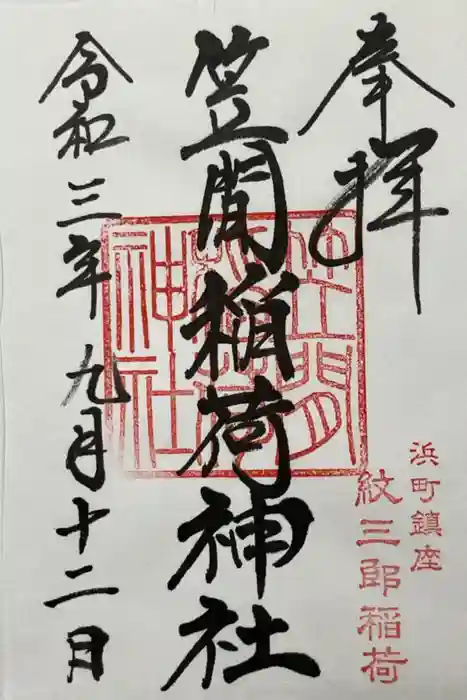 奉拝
浜町鎮座
紋三郎稲荷
笠間稲荷神社
笠間
稲荷
神社
令和三年九月十二日